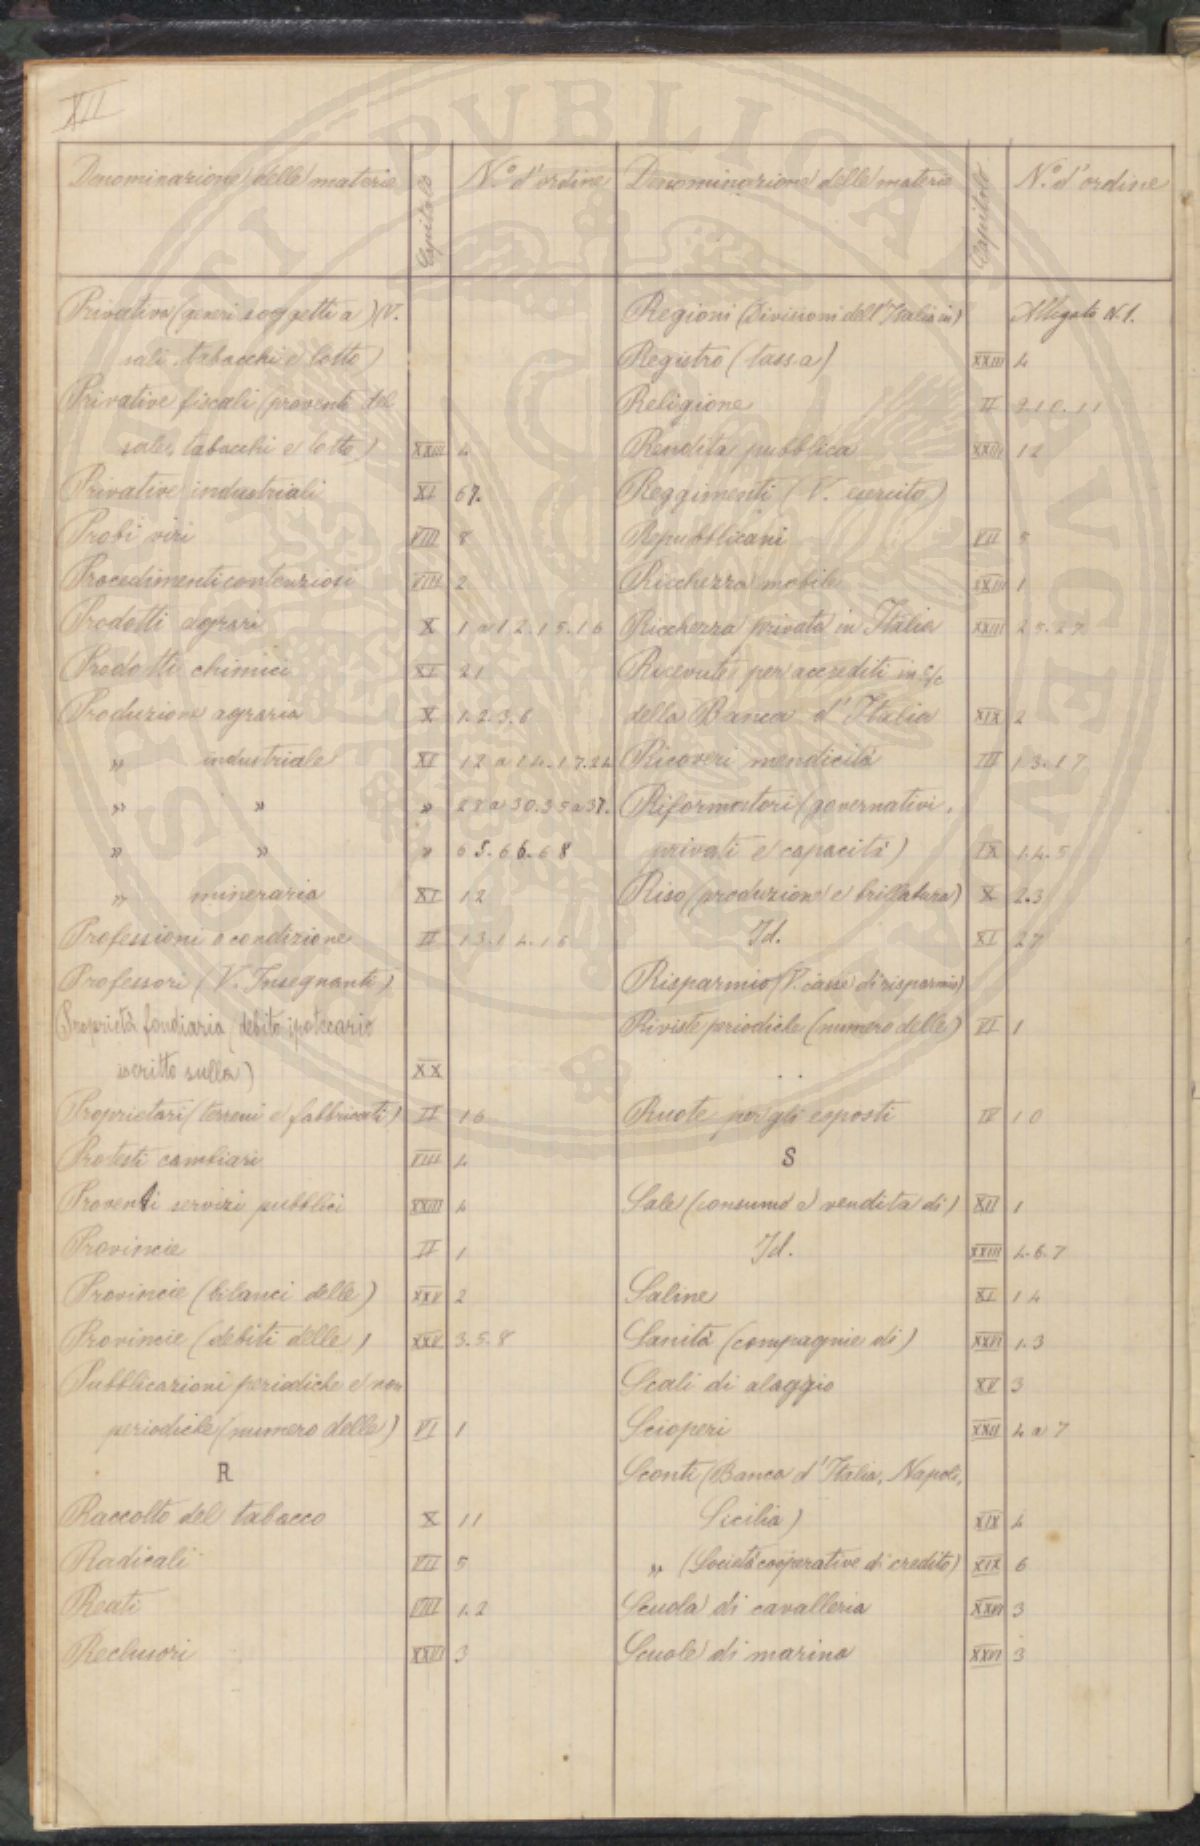 XII
Denominazione delle materie Capitolo N.º d'ordine
Privativa (generi soggetti a) (V.
sali, tabacchi e lotto)
Privative fiscali (proventi del
sale, tabacchi e lotto) XXIII 4
Privative industriali XI 67.
Probi viri VIII 8
Procedimenti contenziosi VIII 2
Prodotti agrari X 1 a 12.15.16
Prodotti chimici XI 21
Produzione agraria X 1.2.3.6
" industriale XI 12 a 14.17.24
" " " 28 a 30.35 a 37.
" " " 65.66.68
" mineraria XI 12
Professioni o condizione II 13.14.16
Professori (V. Insegnanti)
Proprietà fondiaria (debito ipotecario
iscritto sulla) XX
Proprietari (terreni e fabbricati) II 16
Protesti cambiari VIII 4
Proventi servizi pubblici XXIII 4
Provincie II 1
Provincie (bilanci delle) XXV 2
Provincie (debiti delle) XXV 3.5.8
Pubblicazioni periodiche e non
periodiche (numero delle) VI 1
R
Raccolto del tabacco X 11
Radicali VII 5
Reati VIII 1.2
Reclusori XXVI 3
Denominazione delle materie Capitolo N.º d'ordine
Regioni (Divisioni dell'Italia in) Allegato N. 1.
Registro (tassa) XXIII 4
Religione II 9.10.11
Rendita pubblica XXIII 12
Reggimenti (V. esercito)
Repubblicani VII 5
Ricchezza mobile XXIII 1
Ricchezza privata in Italia XXIII 25.27
Ricevute per accrediti in c/c
della Banca d'Italia XIX 2
Ricoveri mendicità III 13.17
Riformatori (governativi,
privati e capacità) IX 1.4.5
Riso (produzione e brillatura) X 2.3
Id. XI 27
Risparmio (V. casse di risparmio)
Riviste periodiche (numero delle) VI 1
Ruote per gli esposti IV 10
S
Sale (consumo e vendita di) XII 1
Id. XXIII 4.6.7
Saline XI 14
Sanità (compagnie di) XXVI 1.3
Scali di alaggio XV 3
Scioperi XXII 4 a 7
Sconti (Banca d'Italia, Napoli,
Sicilia) XIX 4
" (Società cooperative di credito) XIX 6
Scuola di cavalleria XXVI 3
Scuole di marina XXVI 3